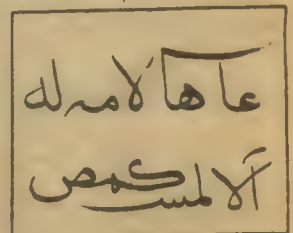 عا ها لا مه له
آلا لمس كمص